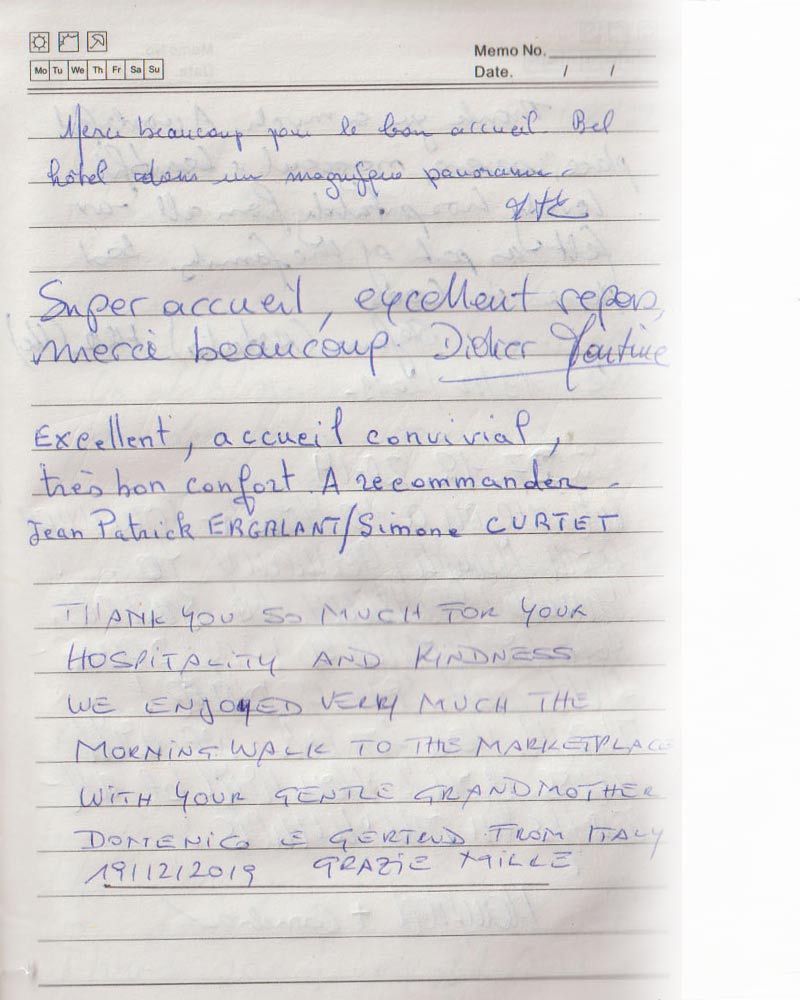 Memo No.
Mo Tu We Th Fr Sa Su
Date. / /
Merci beaucoup pour le bon accueil. Bel
hôtel dans un magnifique panorama.
Super accueil, excellent repas,
merci beaucoup. Didier
Excellent, accueil convivial,
très bon confort. A recommander.
Jean Patrick ERGALANT/Simone CURTET
THANK YOU SO MUCH FOR YOUR
HOSPITALITY AND KINDNESS
WE ENJOYED VERY MUCH THE
MORNING WALK TO THE MARKETPLACE
WITH YOUR GENTLE GRANDMOTHER
DOMENICO E GERTRUD FROM ITALY
19/12/2019 GRAZIE MILLE